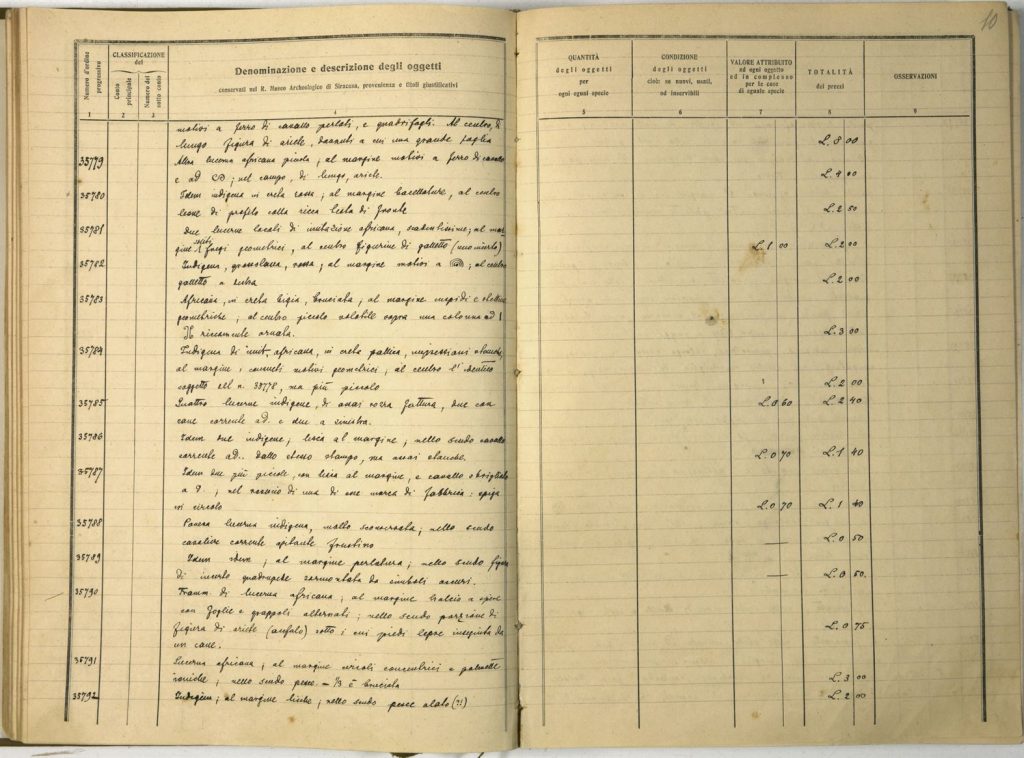 10
Numero d'ordine progressivo
CLASSIFICAZIONE del
Conto principale
Numero del sotto conto
Denominazione e descrizione degli oggetti
conservati nel R. Museo Archeologico di Siracusa, provenienza e titoli giustificativi
QUANTITÀ degli oggetti per ogni ugual specie
CONDIZIONE degli oggetti cioè: se nuovi, usati, od inservibili
VALORE ATTRIBUITO ad ogni oggetto ed in complesso per le cose di eguale specie
TOTALITÀ dei prezzi
OSSERVAZIONI
1 2 3 4 5 6 7 8 9
motivi a ferro di cavallo perlati, e quadrifogli. Al centro, di
lungo figura di ariete, davanti a cui una grande foglia L. 8 00
35779 Altra lucerna africana piccola; al margine motivi a ferro di cavallo
e ad ; nel campo, di lungo, ariete. L. 4 00
35780 Idem indigena in creta rossa; al margine baccellature, al centro
leone di profilo colla ricca testa di fronte L. 2 50
35781 Due lucerne locali di imitazione africana, scadentissime; al mar-
gine fregi geometrici, al centro figurine di galletto (uno incerto) L. 1 00 L. 2 00
35782 Indigena, grossolana, rossa; al margine motivi a ; al centro
galletto a destra L. 2 00
35783 Africana, in creta bigia, bruciata; al margine cuspidi e
geometriche; al centro piccolo volatile sopra una colonna ad
riccamente ornata. L. 3 00
35784 Indigena di imit. africana, in creta gallica, impressioni stanche,
al margine i consueti motivi geometrici, al centro l'identico
soggetto del n. 35778, ma più piccolo L. 2 00
35785 Quattro lucerne indigene, di assai rozza fattura, due con
cane corrente ad. e due a sinestra. L. 0 60 L. 2 40
35786 Idem due indigene; lescia al margine; nello scudo cavallo
corrente ad. dallo stesso stampo, ma assai stanche. L. 0 70 L. 1 40
35787 Idem due più piccole, con al margine, e cavallo
a ; nel di una di esse marca di fabbrica: spiga
in circolo L. 0 70 L. 1 40
35788 Povera lucerna indigena, molto sconservata; nello scudo
cavaliere corrente agitante frustino — L. 0 50
35789 Idem idem; al margine perlatura; nello scudo figura
di incerto quadrupede sormontata da simboli oscuri. — L. 0 50.
35790 Framm. di lucerna africana; al margine tralcio a spire
con foglie e grappoli alternati; nello scudo porzione di
figura di ariete (acefalo) sotto i cui piedi lepre inseguita da
un cane. L. 0 75
35791 Lucerna africana; al margine circoli concentrici e palmette
ioniche; nello scudo pesce. - 1/3 è bruciata L. 3 00
35792 Indigena; al margine liscie; nello scudo pesce alato (?!) L. 2 00